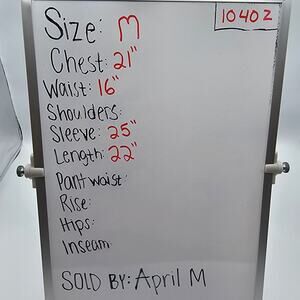 10402
Size: M
Chest: 21"
Waist: 16"
Shoulders:
Sleeve: 25"
Length: 22"
Pant waist:
Rise:
Hips:
Inseam
SOLD BY: April M